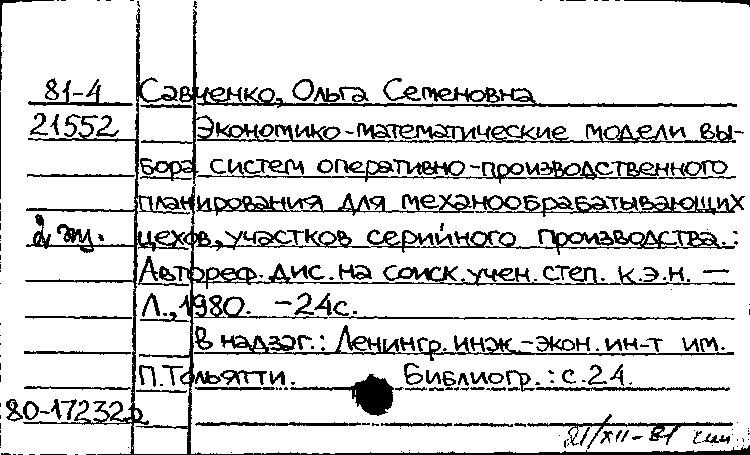 81-4 Савченко, Ольга Семеновна
21552 Экономико-математические модели вы-
бора систем оперативно-производственного
планирования для механообрабатывающих
2 эк. цехов, участков серийного производства.:
Автореф. дис. на соиск. учен. степ. к.э.н. —
Л., 1980. - 24 с.
В надзаг.: Ленингр. инж.-экон. ин-т им.
П. Тольятти. Библиогр.: с. 24.
80-17232р
21/XII-81